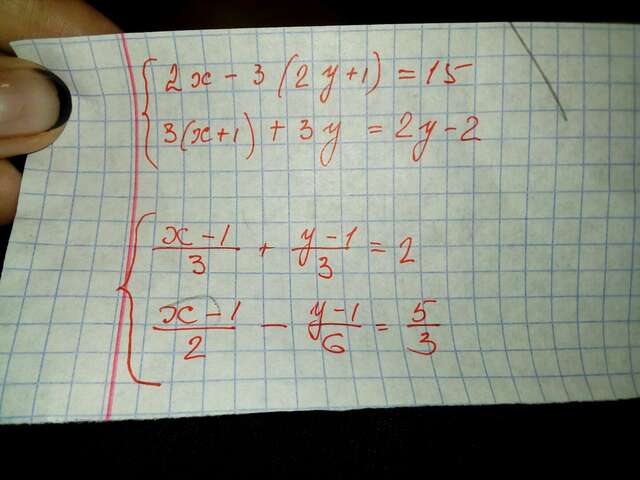 2x - 3(2y+1) = 15
3(x+1) + 3y = 2y - 2
x-1/3 + y-1/3 = 2
x-1/2 - y-1/6 = 5/3